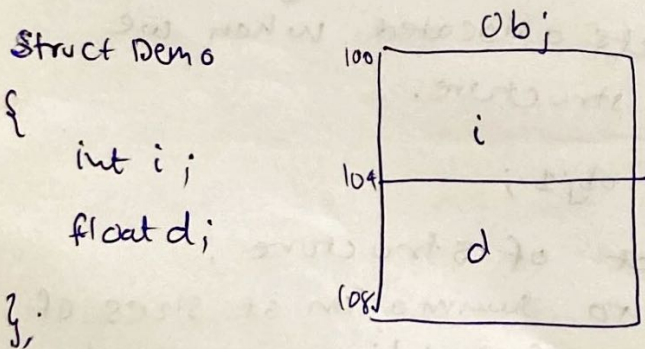 Struct Demo
{
int i;
float d;
};
Obj
100
i
104
d
108